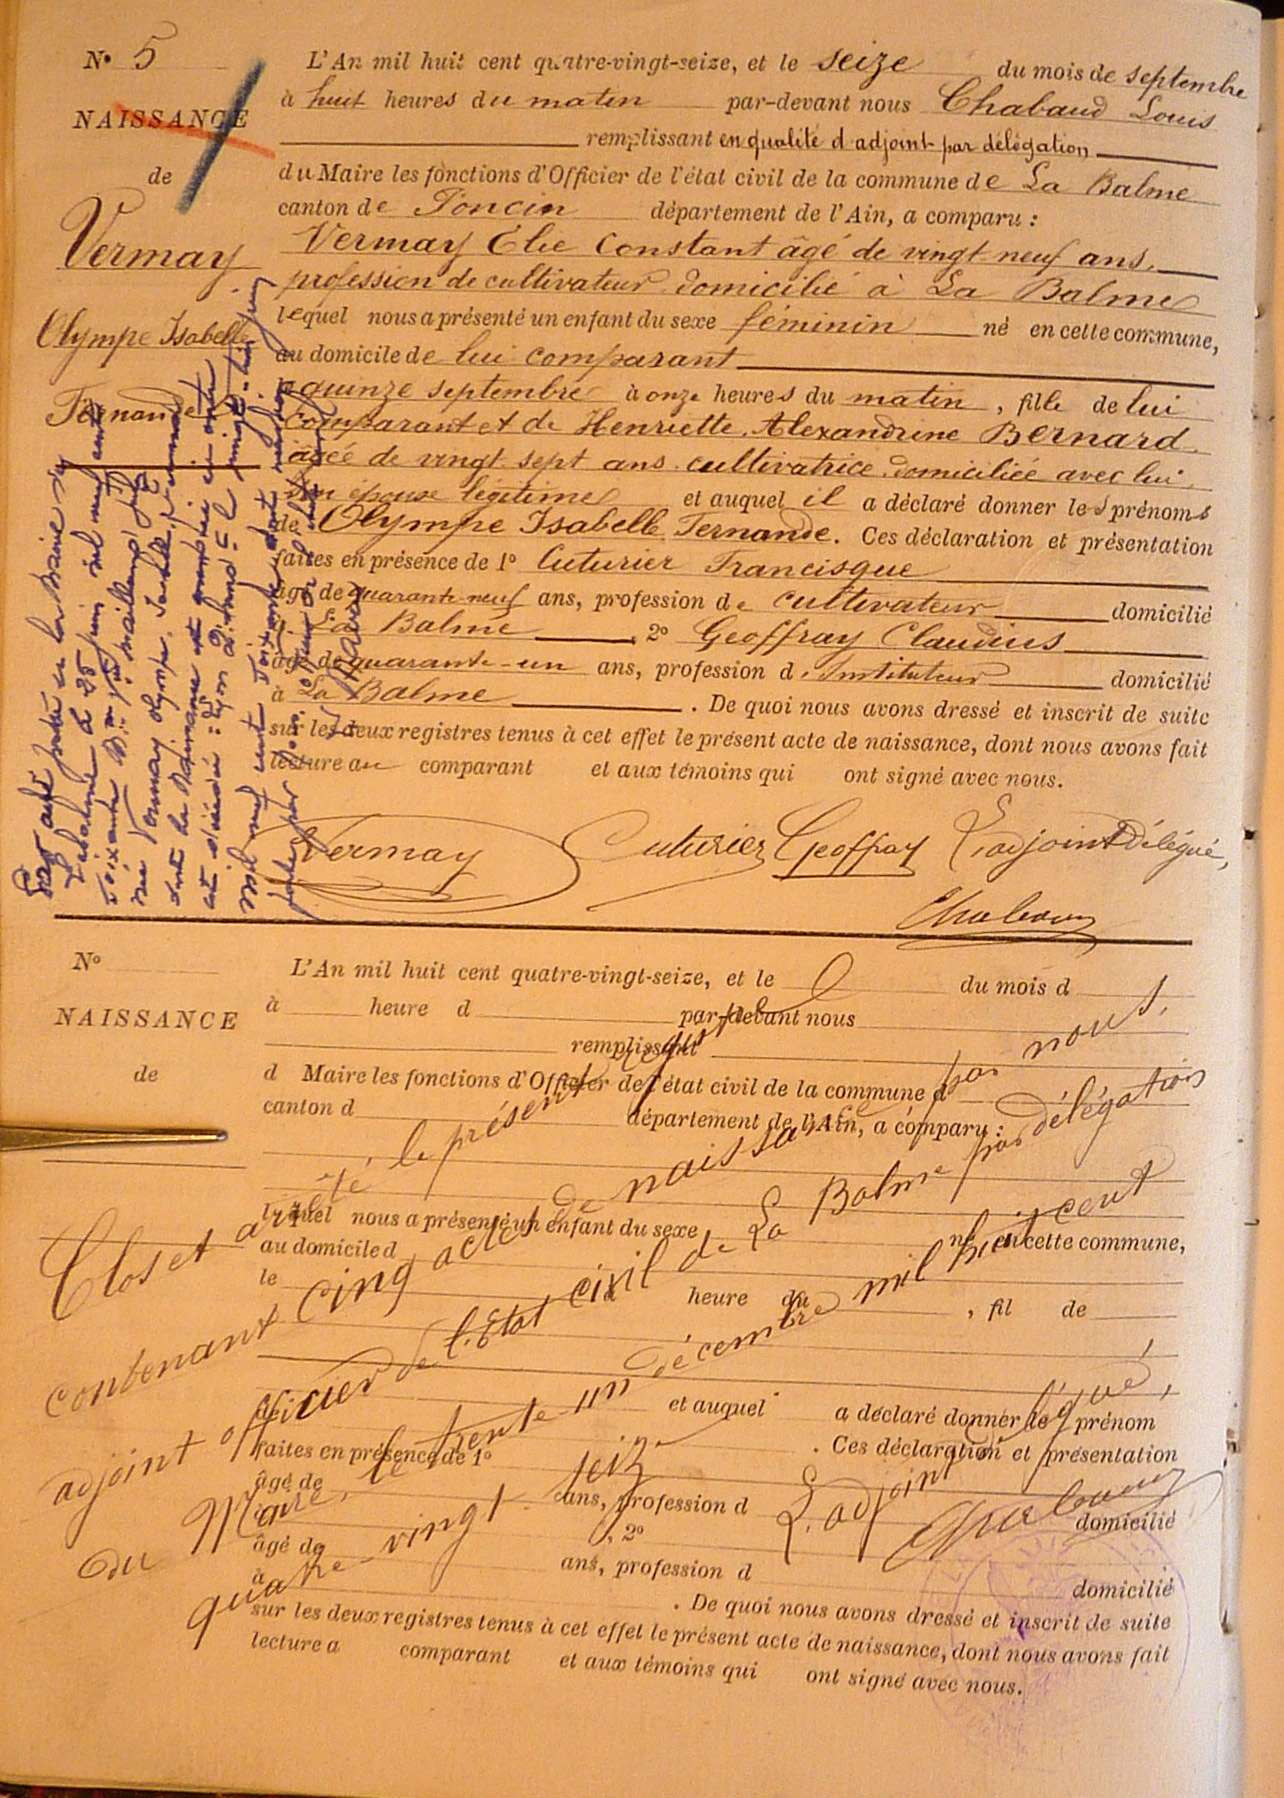 N° 5
NAISSANCE
de
Vermay
Olympe Isabelle
Fernande
L'An mil huit cent quatre-vingt-seize, et le seize du mois de septembre
à huit heures du matin par-devant nous Chabaud Louis
remplissant en qualité d'adjoint par délégation
du Maire les fonctions d'Officier de l'état civil de la commune de La Balme
canton de Poncin département de l'Ain, a comparu :
Vermay Élie Constant âgé de vingt neuf ans,
profession de cultivateur domicilié à La Balme
lequel nous a présenté un enfant du sexe féminin né en cette commune,
au domicile de lui comparant
quinze septembre à onze heures du matin, fille de lui
comparant et de Henriette Alexandrine Bernard
âgée de vingt sept ans cultivatrice domiciliée avec lui,
son épouse légitime et auquel il a déclaré donner les prénoms
de Olympe Isabelle Fernande. Ces déclaration et présentation
faites en présence de 1° Cuturier Francisque
âgé de quarante-neuf ans, profession de cultivateur domicilié
à La Balme, 2° Geoffray Claudius
âgé de quarante-un ans, profession d'instituteur domicilié
à La Balme. De quoi nous avons dressé et inscrit de suite
sur les deux registres tenus à cet effet le présent acte de naissance, dont nous avons fait
lecture au comparant et aux témoins qui ont signé avec nous.
Vermay Cuturier Geoffray L'adjoint délégué,
Chabaud
Par acte passé en la Mairie de
Labalme le 25 juin mil neuf cent
soixante
née Vermay Olympe, Isabelle, Fernande
dont la naissance est
est décédée à Lyon 2e le vingt-huit juin
mil neuf cent soixante
N°
NAISSANCE
de
L'An mil huit cent quatre-vingt-seize, et le du mois d
à heure d par-devant nous
remplissant
d Maire les fonctions d'Officier de l'état civil de la commune d
canton d département de l'Ain, a comparu :
lequel nous a présenté un enfant du sexe né en cette commune,
au domicile d
le heure du , fil de
et auquel a déclaré donner le prénom
de . Ces déclaration et présentation
faites en présence de 1°
âgé de ans, profession d domicilié
à , 2°
âgé de ans, profession d domicilié
à . De quoi nous avons dressé et inscrit de suite
sur les deux registres tenus à cet effet le présent acte de naissance, dont nous avons fait
lecture a comparant et aux témoins qui ont signé avec nous.
Clos et arrêté le présent registre
contenant cinq actes de naissance par nous,
adjoint officier de l'État civil de La Balme par délégation
du Maire, le trente un décembre mil huit cent
quatre-vingt-seize
L'adjoint délégué,
Chabaud